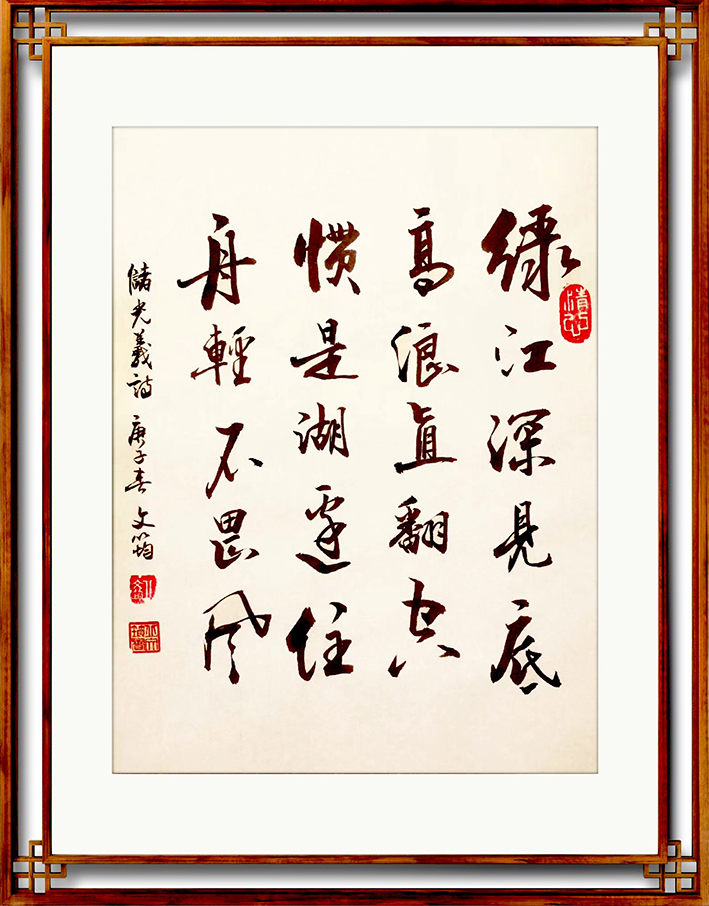 綠江深見底
高浪直翻空
慣是湖邊住
舟輕不畏風
儲光羲詩 庚子春 文筠